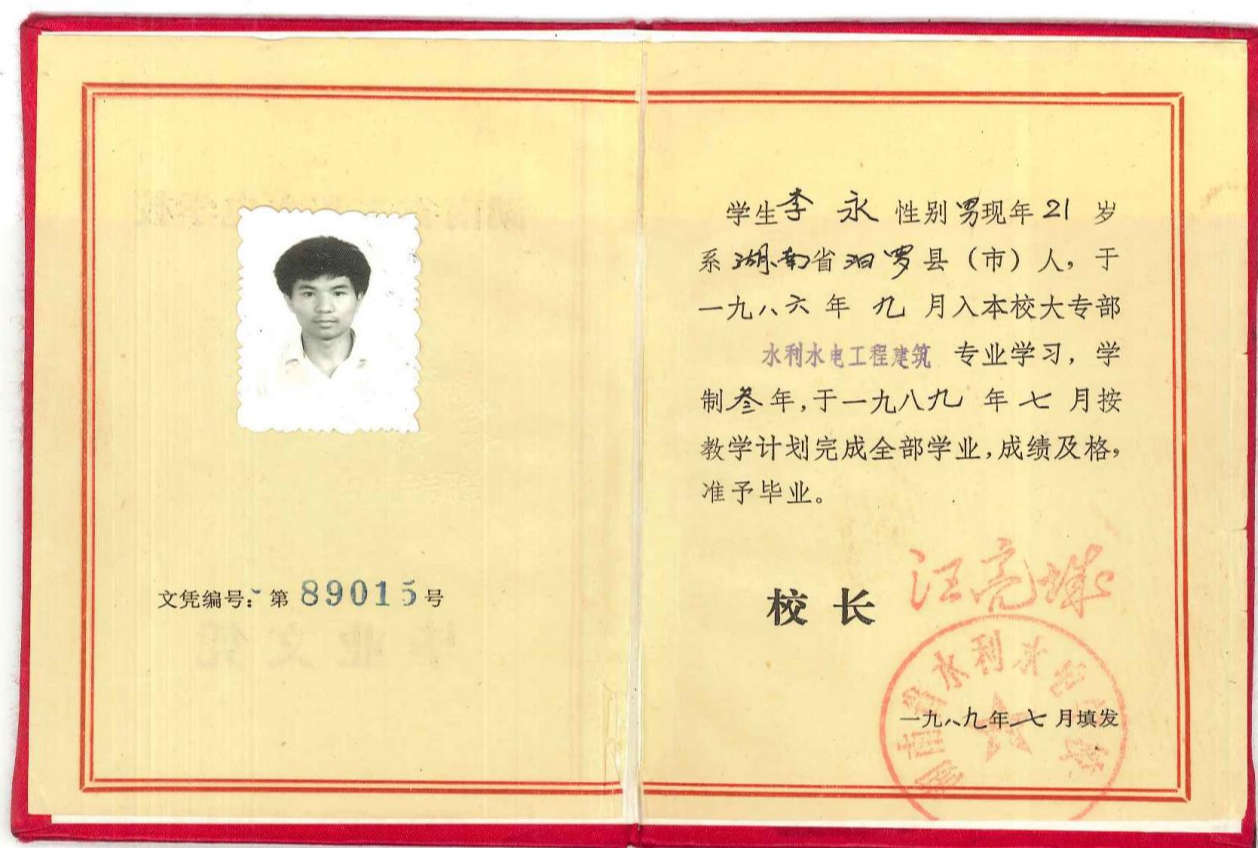 文凭编号：第 89015 号
学生李 永 性别男现年 21 岁
系湖南省汨罗县（市）人，于
一九八六年 九 月入本校大专部
水利水电工程建筑 专业学习，学
制叁年，于一九八九 年 七 月按
教学计划完成全部学业，成绩及格，
准予毕业。
校长 汪亮
湖南省水利水电学校
一九八九年七月填发